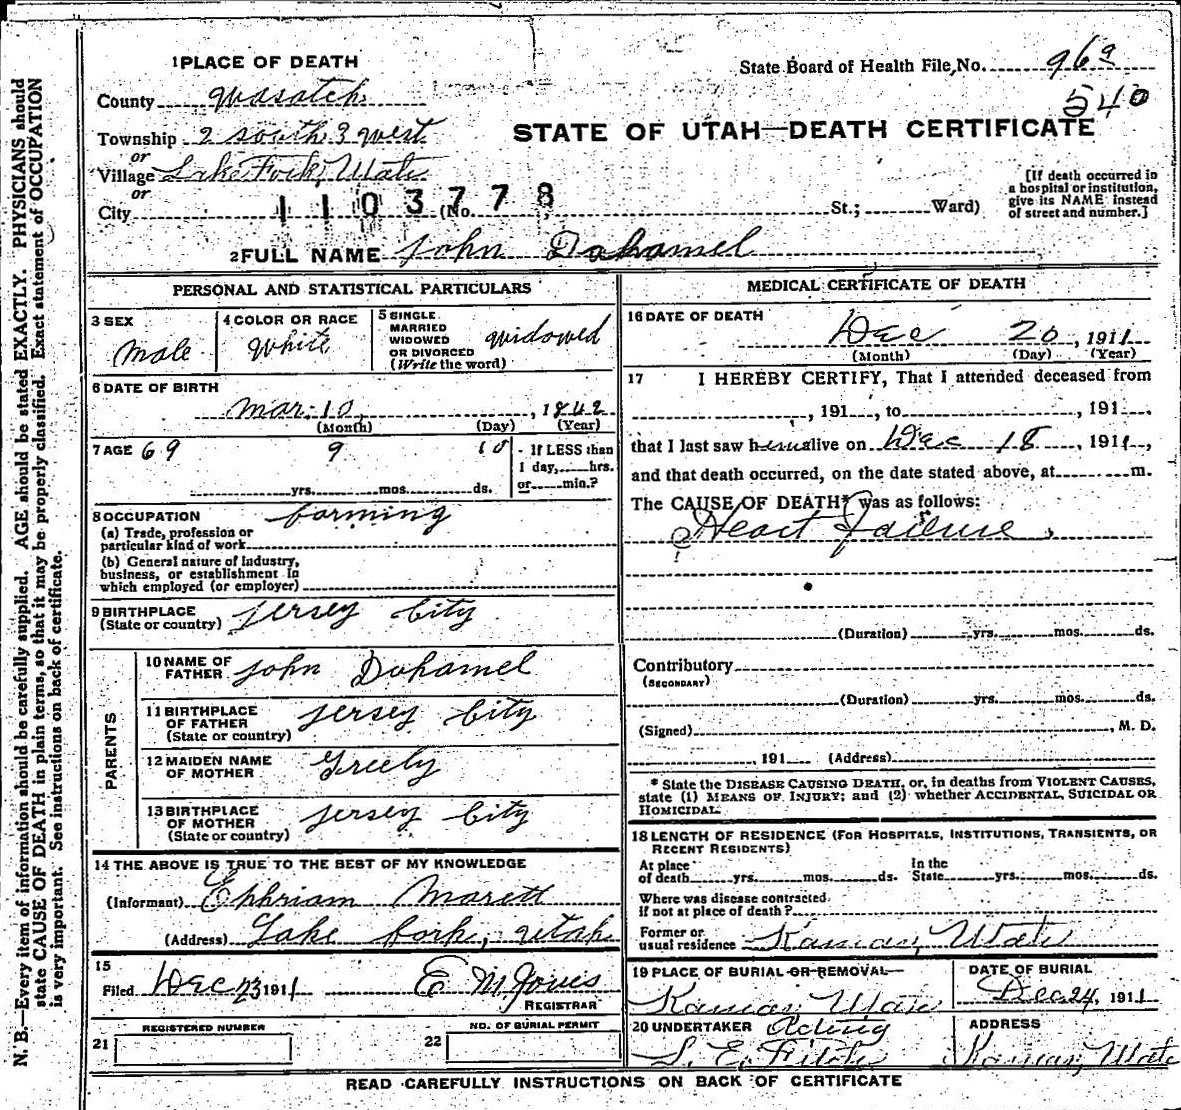 1 PLACE OF DEATH
State Board of Health File No. 96a
County Wasatch
540
Township 2 south 3 west
STATE OF UTAH—DEATH CERTIFICATE
or
Village Lake Fork, Utah
or
City
110 3778
(No. St.; Ward)
[If death occurred in
a hospital or institution,
give its NAME instead
of street and number.]
2 FULL NAME John Dohamel
PERSONAL AND STATISTICAL PARTICULARS
3 SEX
Male
4 COLOR OR RACE
White
5 SINGLE
MARRIED
WIDOWED
OR DIVORCED
(Write the word)
widowed
6 DATE OF BIRTH
Mar. 10, 1842
(Month) (Day) (Year)
7 AGE 69 9 10
yrs. mos. ds.
If LESS than
1 day, hrs.
or min.?
8 OCCUPATION farming
(a) Trade, profession or
particular kind of work
(b) General nature of Industry,
business, or establishment in
which employed (or employer)
9 BIRTHPLACE
(State or country) Jersey City
PARENTS
10 NAME OF
FATHER John Dohamel
11 BIRTHPLACE
OF FATHER
(State or country) Jersey City
12 MAIDEN NAME
OF MOTHER Greely
13 BIRTHPLACE
OF MOTHER
(State or country) Jersey City
14 THE ABOVE IS TRUE TO THE BEST OF MY KNOWLEDGE
(Informant) Ephriam Marett
(Address) Lake fork, Utah
15
Filed Dec 23 1911 E M Jones
REGISTRAR
REGISTERED NUMBER
21
NO. OF BURIAL PERMIT
22
MEDICAL CERTIFICATE OF DEATH
16 DATE OF DEATH
Dec 20, 1911
(Month) (Day) (Year)
17 I HEREBY CERTIFY, That I attended deceased from
, 191 , to , 191
that I last saw him alive on Dec 18, 1911,
and that death occurred, on the date stated above, at m.
The CAUSE OF DEATH* was as follows:
Heart Failure,
(Duration) yrs. mos. ds.
Contributory
(SECONDARY)
(Duration) yrs. mos. ds.
(Signed) , M. D.
, 191 (Address)
* State the DISEASE CAUSING DEATH, or, in deaths from VIOLENT CAUSES,
state (1) MEANS OF INJURY; and (2) whether ACCIDENTAL, SUICIDAL OR
HOMICIDAL.
18 LENGTH OF RESIDENCE (FOR HOSPITALS, INSTITUTIONS, TRANSIENTS, OR
RECENT RESIDENTS)
At place
of death yrs. mos. ds.
In the
State yrs. mos. ds.
Where was disease contracted
if not at place of death?
Former or
usual residence Kamas, Utah
19 PLACE OF BURIAL OR REMOVAL
Kamas, Utah
DATE OF BURIAL
Dec 24, 1911
20 UNDERTAKER Acting
S. E. Fitch
ADDRESS
Kamas, Utah
READ CAREFULLY INSTRUCTIONS ON BACK OF CERTIFICATE
N. B.—Every item of information should be carefully supplied. AGE should be stated EXACTLY. PHYSICIANS should
state CAUSE OF DEATH in plain terms, so that it may be properly classified. Exact statement of OCCUPATION
is very important. See instructions on back of certificate.